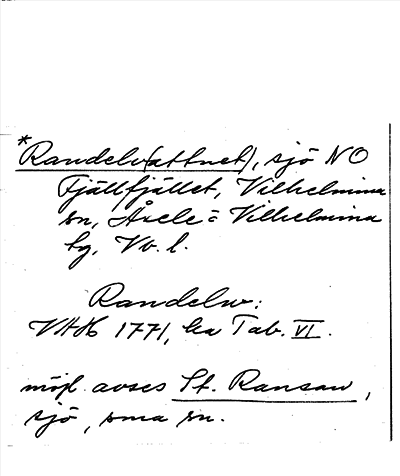 *Randelv(attnet), sjö NO
Fjällfjället, Vilhelmina
sn, Åsele = Vilhelmina
tg, Vb. l.
Randelw:
VHH 1771, ka Tab. VI.
möjl. avses St. Ransaw,
sjö, sma sn.